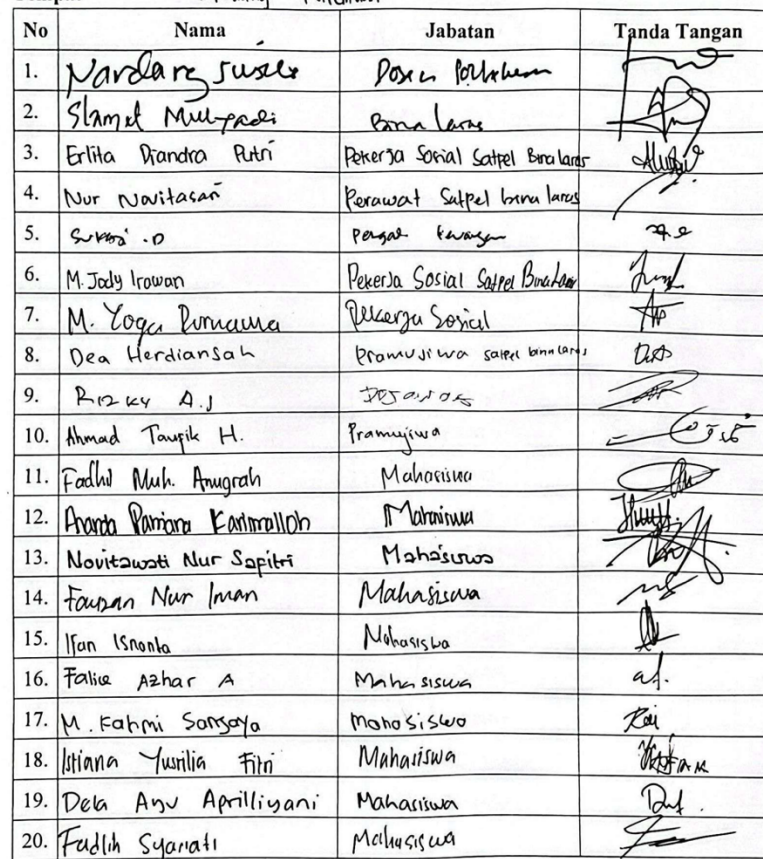 No Nama Jabatan Tanda Tangan
1. Nandang Susila Dosen
2. Slamet Mulyadi Bina laras
3. Erlita Diandra Putri Pekerja Sosial Satpel Bina laras
4. Nur Novitasari Perawat Satpel bina laras
5.
6. M. Jody Irawan Pekerja Sosial Satpel Bina Laras
7. M. Yoga Purnama Pekerja Sosial
8. Dea Herdiansah Pramujiwa satpel bina laras
9. Rizky A.J
10. Ahmad Taufik H. Pramujiwa
11. Fadhil Muh. Anugrah Mahasiswa
12. Ananda Karimalloh Mahasiswa
13. Novitawati Nur Sapitri Mahasiswa
14. Fauzan Nur Iman Mahasiswa
15. Ifan Isnanta Mahasiswa
16. Azhar A Mahasiswa
17. M. Fahmi Sanjaya Mahasiswa
18. Istiana Yusrilia Fitri Mahasiswa
19. Dela Ayu Aprilliyani Mahasiswa
20. Fadlih Syariati Mahasiswa